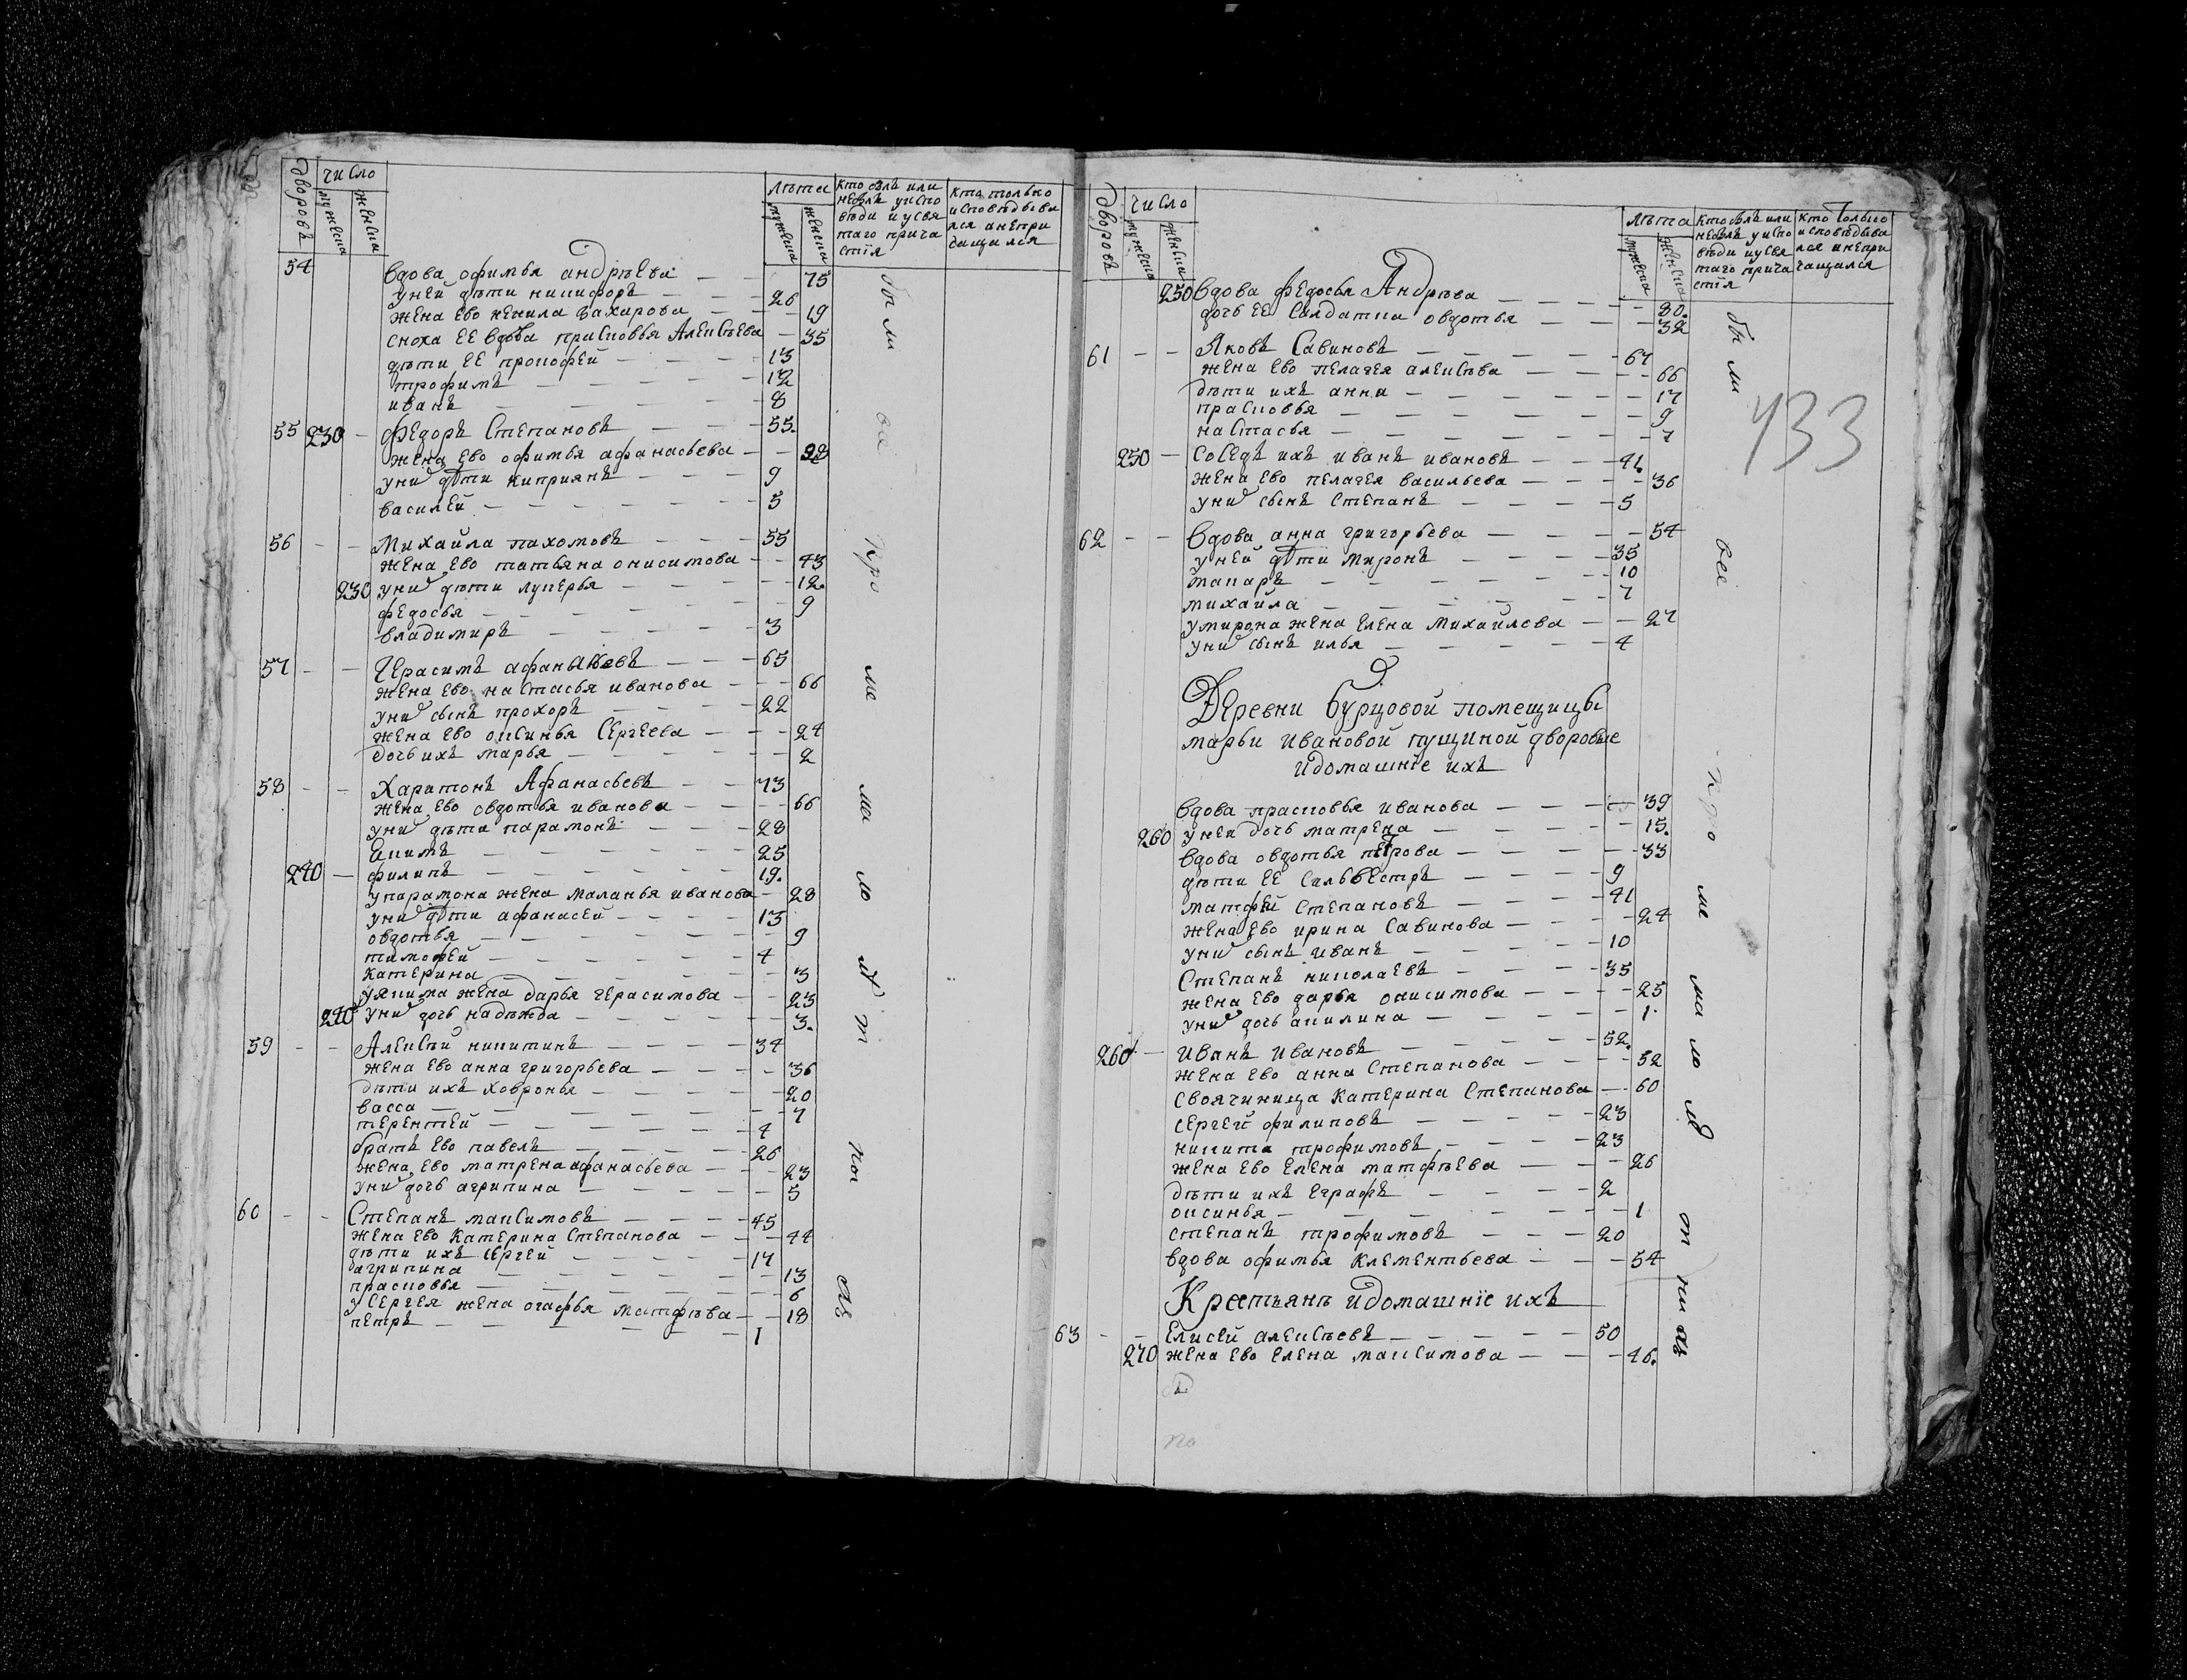 дворовъ
число
мужеска
женска
лѣта
мужеска
женска
кто былъ или
небылъ уиспо
вѣди иусвя
таго прича
стія
кто только
исповѣдыва
лся анепри
чащался
54 вдова офимья андрѣева — — 75
уней дѣти никифоръ — — 26
жена ево ненила захарова — — 19
сноха ЕЕ вдова присковья Алексѣева — 35
дѣти ЕЕ прокофей — — — 13
трофимъ — — — — 12
иванъ — — — — 8
55 230 — Федоръ Степановъ — — 55.
жена ево офимья афанасьева — —
уних дѣти киприянъ — — — 9
василей — — — — — 5
56 — — Михайла пахомовъ — — — 55
жена ево татьяна онисимова — — 43
230 уних дѣти лукерья — — — — 12.
федосья — — — — — 9
владимиръ — — — — — 3
57 — — Герасимъ афанасьевъ — — — 65
жена ево настасья иванова — — — 66
уних сынъ прохоръ — — — — 22
жена ево оксинья Сергеева — — — 24
дочь ихъ марья — — — — — 2
58 — — Харатонъ Афанасьевъ — — 73
жена ево овдотья иванова — — — 66
уних дѣти парамонъ — — — 28
Екимъ — — — — — 25
240 — филипъ — — — — — 19.
упарамона жена маланья иванова — 28
уних дѣти афанасей — — — — 13
овдотья — — — — — 9
тимофей — — — — — 4
катерина — — — — — 3
уякима жена дарья герасимова — — 23
240 уних дочь надѣжда — — — — — 3.
59 — — Алексѣй никитинъ — — — — 34
жена ево анна григорьева — — — — 36
дѣти ихъ ховронья — — — — — 20
васса — — — — — — 7
терентей — — — — — — 4
братъ ево павелъ — — — — 26
жена ево матрена афанасьева — — — 23
уних дочь агрипина — — — — — 5
60 — — Степанъ максимовъ — — — — 45
жена ево катерина Степанова — — — 44
дѣти ихъ сергей — — — — 17
агрипина — — — — — 13
прасковья — — — — — 6
уСергея жена огафья матфѣва — — 18
петръ — — — — — 1
были
все
про
ме
ма
ло
лѣ
т
ны
хъ
дворовъ
число
мужеска
женска
лѣта
мужеска
женска
кто былъ или
небылъ уиспо
вѣди иусвя
таго прича
стія
кто только
исповѣдыва
лся анепри
чащался
433
250 вдова федосья Андрѣва — — — — 80.
дочь ЕЕ Салдатка овдотья — — — 32
61 — — Яковъ Савиновъ — — — — — 67
жена ево пелагея алексѣва — — — 66
дѣти ихъ анна — — — — — 17
прасковья — — — — — — 9
настасья — — — — — — 7
250 — Соседъ ихъ иванъ ивановъ — — — 41.
жена ево пелагея васильева — — — — 36
уних сынъ Степанъ — — — — 5
62 — — вдова анна григорьева — — — — 54
уней дѣти миронъ — — — — 35
макаръ — — — — — — 10
михайла — — — — — — 7
умирона жена елена михайлова — — 27
уних сынъ илья — — — — — 4
Деревни бурцовой помещицы
марьи ивановой пущиной дворовые
идомашніе ихъ
вдова прасковья иванова — — — — 39
260 уней дочь матрена — — — — — 15.
вдова овдотья петрова — — — — — 33
дѣти ЕЕ Сильвестръ — — — — 9
матфей степановъ — — — — 41
жена ево ирина савинова — — — — 24
уних сынъ иванъ — — — — — 10
Степанъ николаевъ — — — — 35
жена ево дарья онисимова — — — — 25
уних дочь акилина — — — — — 1.
260 — Иванъ Ивановъ — — — — — 52.
жена ево анна Степанова — — — — 52
своячинища катерина Степанова — — 60
сергей филиповъ — — — — 23
никита трофимовъ — — — — 23
жена ево елена матфѣева — — — 26
дѣти ихъ еграфъ — — — — 2
оксинья — — — — — — 1
степанъ трофимовъ — — — 20
вдова офимья Клементьева — — — 54
Крестьянъ идомашніе ихъ
63 — — Елисей алексѣевъ — — — — — 50
270 жена ево елена максимова — — — 46.
были
все
про
ме
ма
ло
лѣ
т
ны
хъ